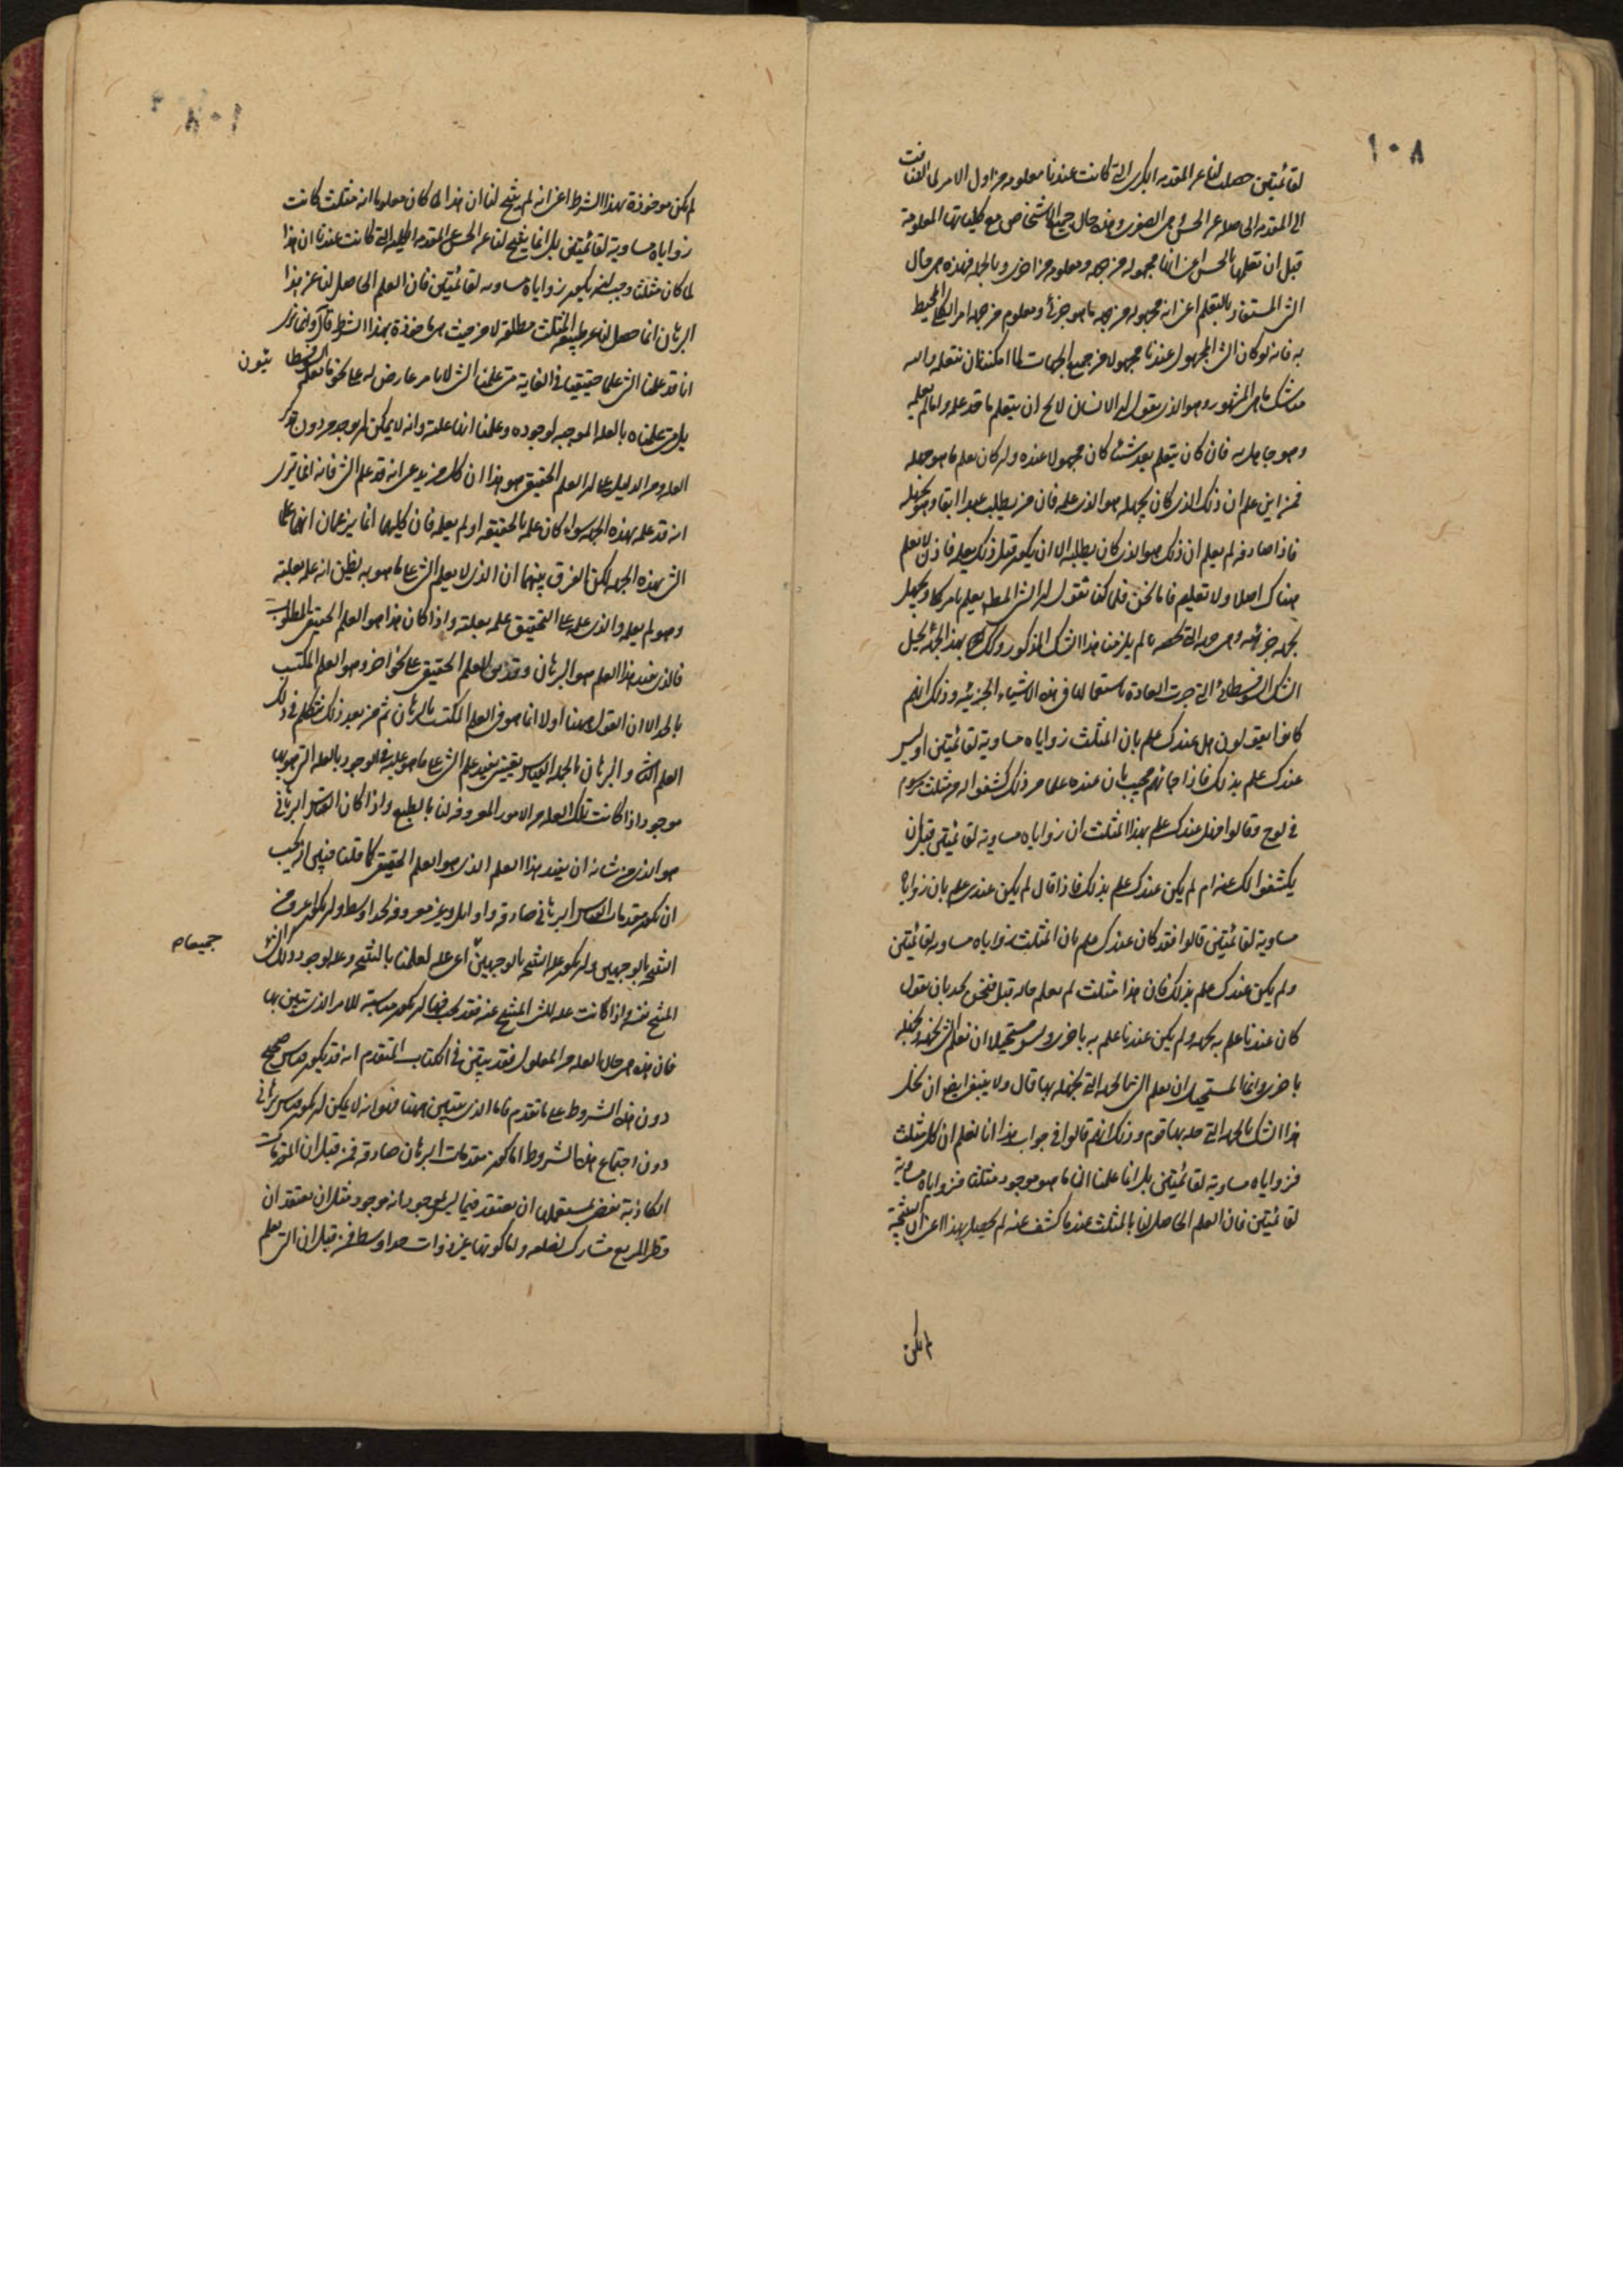 ١٠٨
لقائمتين حصلت لنا عن المقدمة الكبرى التى كانت عندنا معلومة من اول الامر لما انضافت
الى المقدمة التى حصلت عن الحس وهى الصغرى وهذه حال جميع الاشخاص مع كلياتها المعلومة
قبل ان نعلمها بالحس اعنى انها مجهولة من جهة ومعلومة من اخرى وبالجملة فهذه هى حال
الشى المستفاد بالتعلم اعنى انه مجهول من جهة ما هو جزئى ومعلوم من جهة الامر الكلى المحيط
به فانه لو كان الشى المجهول عندنا مجهولا من جميع الجهات لما امكننا ان نتعلمه
شك مانن المشهور وهو الذى يقول ان الانسان لا يخلو ان يتعلم ما قد علمه او ما لم يعلمه
وهو جاهل به فان كان يتعلم بعد شيئا كان مجهولا عنده ولم كان يعلم ما هو جهله
فمن اين علم ان ذلك الذى كان يجهله هو الذى علمه فان من يطلب عبدا ابقا وهو يجهله
فاذا صادفه لم يعلم ان ذلك هو الذى كان يطلبه الا ان يكون قبل ذلك يعلمه فاذن لا تعلم
هناك اصلا ولا تعليم فاما نحن فلما كنا نقول ان الشى المطلوب يعلم بامر كلى ويجهل
بجهة جزئية وهى جهة التى تخصه لم يلزمنا هذا الشك المذكور وكذلك بهذه الجهة ينحل
الشك السوفسطائى التى جرت العادة باستعمالها فى هذه الاشياء الجزئية وذلك انهم
كانوا يقولون هل عندك علم بان المثلث زواياه مساوية لقائمتين او ليس
عندك علم بذلك فاذا اجابهم مجيب بان عنده علما من ذلك كشفوا له عن مثلث مرسوم
فى لوح وقالوا فهل عندك علم بهذا المثلث ان زواياه مساوية لقائمتين قبل ان
يكشفوا لك عنه ام لم يكن عندك علم بذلك فاذا قال لم يكن عندى علم بان زواياه
مساوية لقائمتين قالوا فقد كان عندك علم بان المثلث زواياه مساوية لقائمتين
ولم يكن عندك علم بذلك فان هذا مثلث لم تعلم حاله قبل فنحن نجد بان نقول
كان عندنا علم به بجهة ولم يكن عندنا علم به باخرى وليس مستحيلا ان نعلم الشى بجهة ونجهله
باخرى وانما المستحيل ان نعلم الشى بالجهة التى نجهله بها قال ولا ينبغى ايضا ان نحل
هذا الشك بالجهة التى حله بها قوم وذلك انهم قالوا فى جواب هذا انا لم نعلم ان كل مثلث
فزواياه مساوية لقائمتين بل انما علمنا ان ما هو موجود مثلثا فزواياه مساوية
لقائمتين فان العلم الحاصل لنا بالمثلث عندما كشف عنه لم يحصل بهذا اعنى ان النتيجة
لم تكن
لم تكن موخوذة بهذا الشرط اعنى انه لم ينتج لنا ان هذا لما كان معلوما انه مثلث كانت
زواياه مساوية لقائمتين بل انما ينتج لنا عن الحس وعن المقدمة الكلية التى كانت عندنا ان هذا
لما كان مثلثا وجب ان يكون زواياه مساوية لقائمتين فان العلم الحاصل لنا عن هذا
البرهان انما حصل لنا عن طبيعة المثلث مطلقة لا من حيث هى ماخوذة بهذا الشرط قال وانما نرى
انا قد علمنا الشى علما حقيقيا فى الغاية متى علمنا الشى لا بامر عارض له على نحو ما يعلمه السوفسطا ئيون
بل متى علمناه بالعلة الموجبة لوجوده وعلمنا انها علته وانه لا يمكن ان يوجد من دون تلك
العلة ومن الدليل على ان العلم الحقيقى هو هذا ان كل من يدعى انه قد علم الشى فانه انما يرى
انه قد علمه بهذه الجهة سواء كان علمه بالحقيقة او لم يعلمه فان كليهما انما يزعمان انهما علما
الشى بهذه الجهة لكن الفرق بينهما ان الذى لا يعلم الشى على ما هو به يظن انه علمه بعلته
وهو لم يعلمه والذى علمه على التحقيق علمه بعلته واذا كان هذا هو العلم الحقيقى المطلوب
فالذى يفيد هذا العلم هو البرهان وقد يكون العلم الحقيقى على نحو اخر وهو العلم المكتسب
بالحد الا ان القول ههنا اولا انما هو فى العلم المكتسب بالبرهان ثم من بعد ذلك نتكلم فى ذلك
العلم الثانى والبرهان بالجملة هو قياس يقينى يفيد علم الشى على ما هو عليه فى الوجود بالعلة التى هو بها
موجود اذا كانت تلك العلة من الامور المعروفة لنا بالطبع واذا كان القياس البرهانى
هو الذى من شانه ان يفيد هذا العلم الذى هو العلم الحقيقى كما قلنا فبين انه يجب
ان تكون مقدمات القياس البرهانى صادقة واوائل وغير معروفة بحد اوسط وان تكون اعرف من
النتيجة بالوجهين وان تكون علة النتيجة بالوجهين جميعا اعنى علة لعلمنا بالنتيجة وعلة لوجود ذلك الشى
المنتج نفسه واذا كانت علة للشى المنتج عنه فقد يجب فيها ان تكون مناسبة للامر الذى يتبين بها
فان هذه هى حال العلة من المعلول فقد يتبين فى الكتاب المتقدم انه قد يكون قياس صحيح
دون هذه الشروط على ما تقدم فاما الذى يتبين ههنا فهو انه لا يمكن ان يكون قياس برهانى
دون اجتماع هذه الشروط اما كون مقدمات البرهان صادقة فمن قبل ان المقدمات
الكاذبة تفضى بمستعملها ان يعتقد فيما ليس بموجود انه موجود مثل ان يعتقد ان
قطر المربع مشارك لضلعه واما كونها غير ذوات حد اوسط فمن قبل ان الشى يعلم